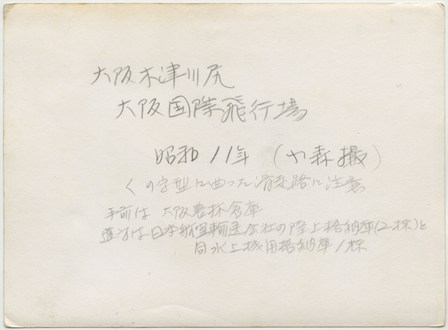 大阪木津川尻
大阪国際飛行場
昭和11年 (小森撮)
くの字型に曲った滑走路に注意
手前は 大阪農林倉庫
遠方は日本航空輸送会社の陸上格納庫(2棟)と
同水上機用格納庫1棟